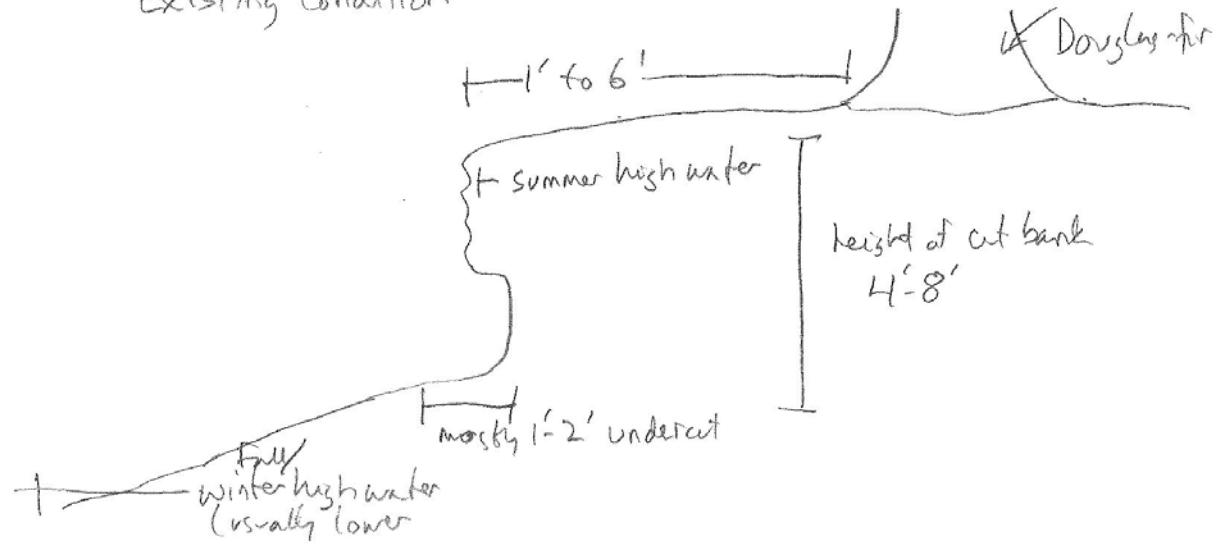 Existing Condition
Douglas-fir
1' to 6'
summer high water
height of cut bank
4'-8'
mostly 1'-2' undercut
Fall/
winter high water
(usually lower